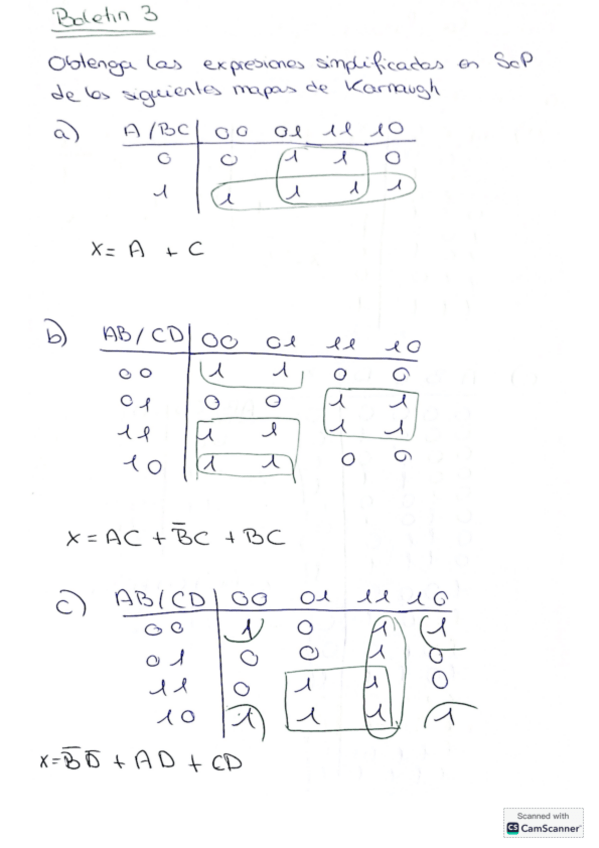 Boletín 3
Obtenga las expresiones simplificadas en SoP
de los siguientes mapas de Karnaugh
a) A/BC 00 01 11 10
0 0 1 1 0
1 1 1 1 1
X = A + C
b) AB/CD 00 01 11 10
00 1 1 0 0
01 0 0 1 1
11 1 1 1 1
10 1 1 0 0
X = AC + B̅C + BC
c) AB/CD 00 01 11 10
00 1 0 1 1
01 0 0 1 0
11 0 1 1 0
10 1 1 1 1
X = B̅D̅ + AD + CD
Scanned with
CS CamScanner